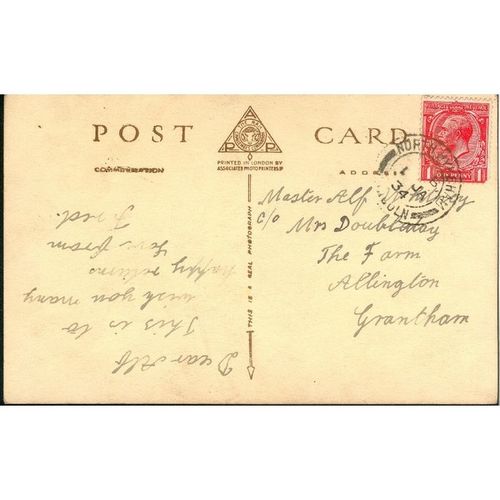 POST CARD
COMMUNICATION
ADDRESS
A P
PRINTED IN LONDON BY
ASSOCIATED PHOTO PRINTERS LD
THIS IS A REAL PHOTOGRAPH
POSTAGE
REVENUE
1 ONE PENNY 1
NORTH
1 JA
34
LINCOLN
Dear Alf
This is to
wish you many
happy returns
Love from
Fred.
Master Alf
c/o Mrs Doubleday
The Farm
Allington
Grantham